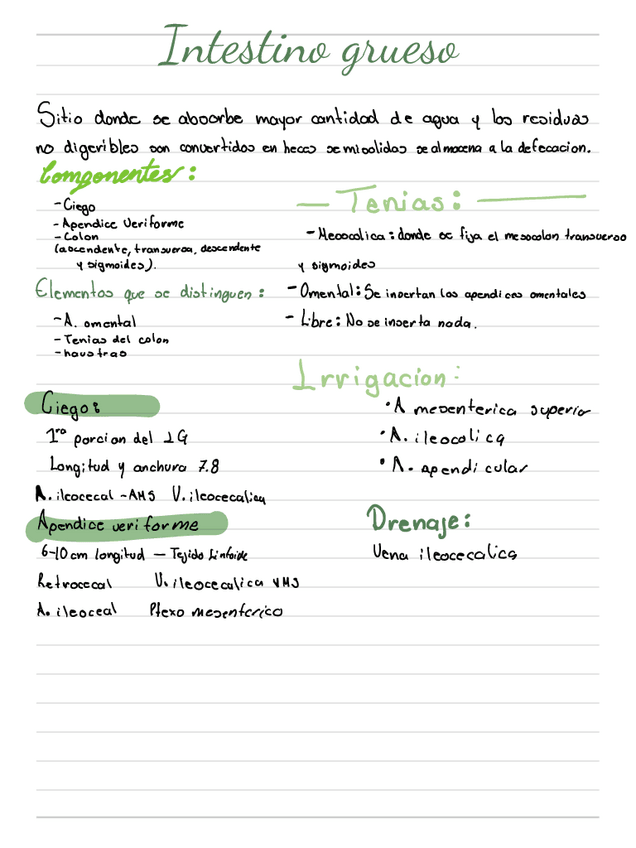 Intestino grueso
Sitio donde se absorbe mayor cantidad de agua y los residuos
no digeribles son convertidos en heces semisolidas se almacena a la defecacion.
Componentes:
-Ciego
-Apendice Veriforme
-Colon
(ascendente, transversa, descendente
y sigmoides).
Elementos que se distinguen:
-A. omental
-Tenias del colon
-haustras
— Tenias: —
-Mesocalica: donde se fija el mesocolon transverso
y sigmoides
-Omental: Se insertan los apendices omentales
- Libre: No se inserta nada.
Irrigacion:
•A mesenterica superior
•A. ileocolica
•A. apendicular
Ciego:
1ra porcion del IG
Longitud y anchura 7.8
A. ileocecal -AMS V. ileocecalica
Apendice veriforme
6-10cm longitud — Tejido Linfoide
Retrocecal V. ileocecalica VMS
A. ileoceal Plexo mesenterico
Drenaje:
Vena ileocecalica